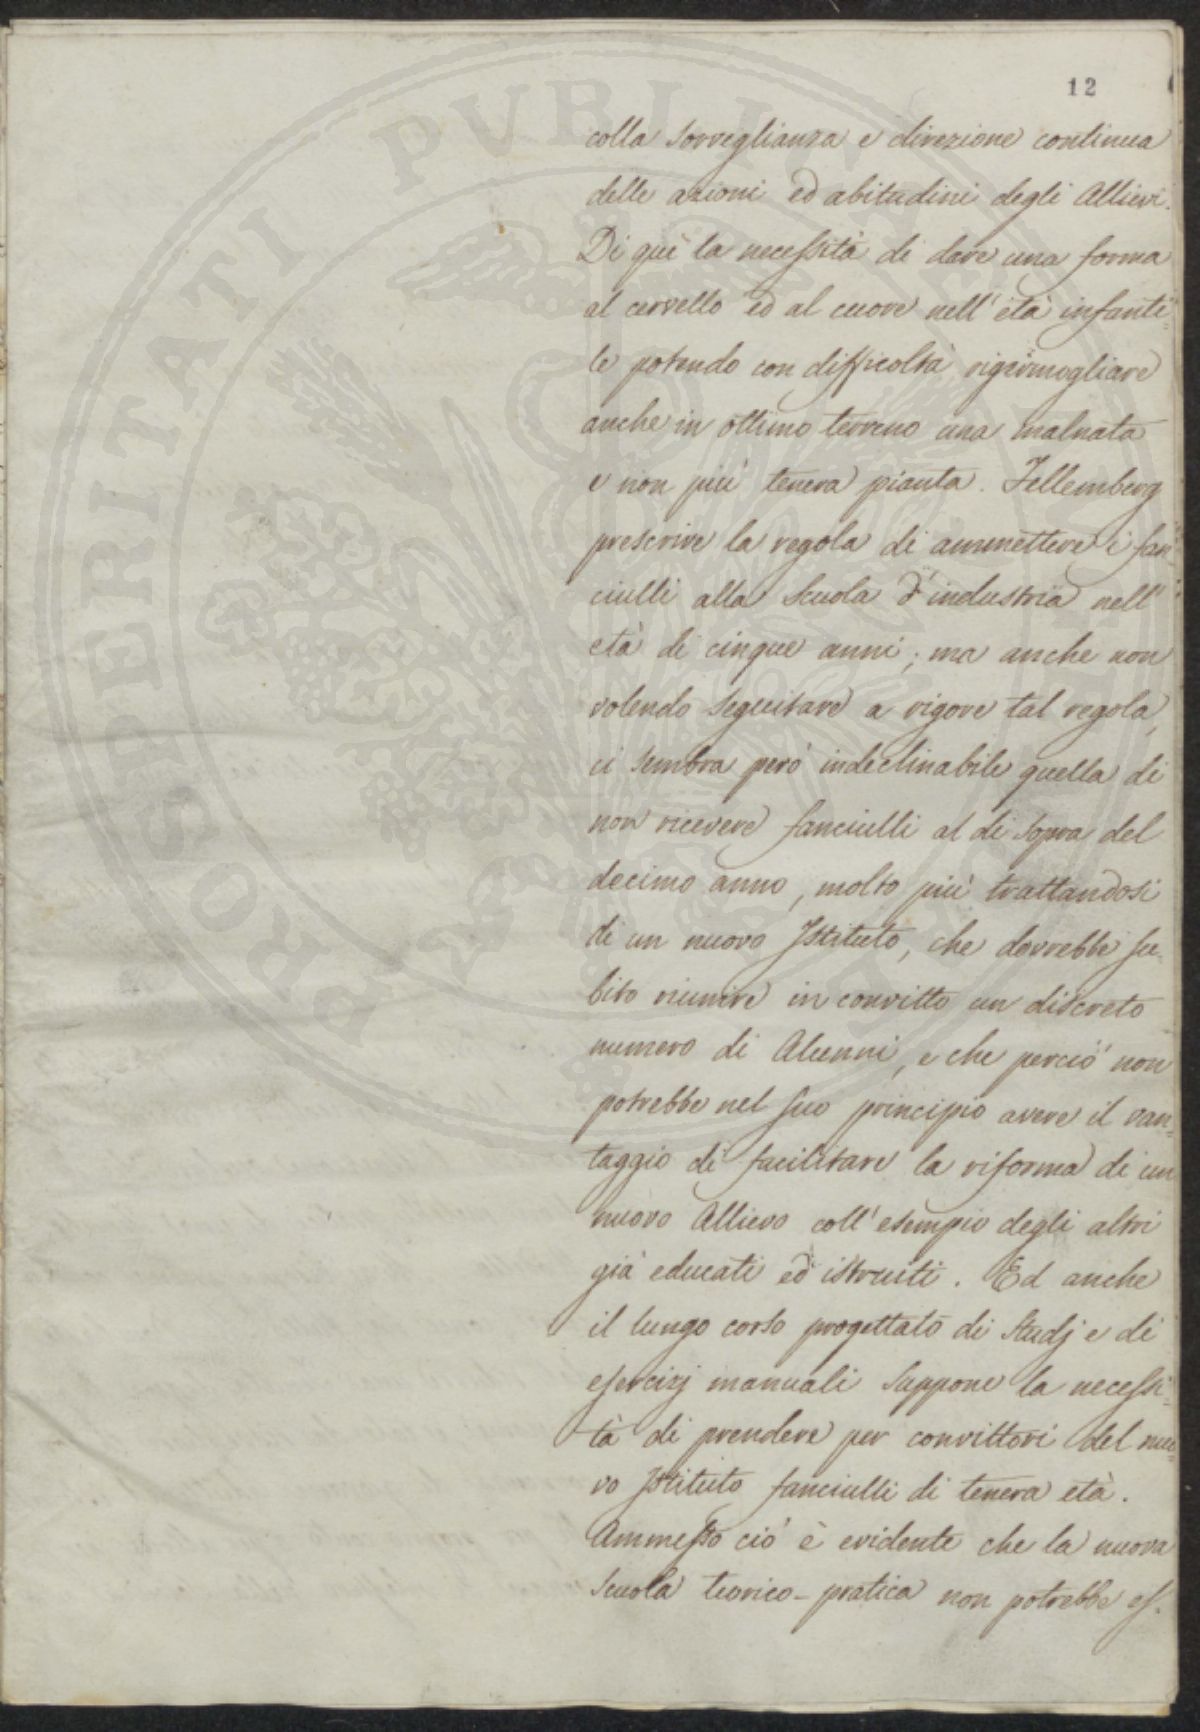 12
colla sorveglianza e direzione continua
delle azioni ed abitudini degli Allievi.
Di quì la necessità di dare una forma
al cervello ed al cuore nell' età infanti=
le potendo con difficoltà rigermogliare
anche in ottimo terreno una malnata
e non più tenera pianta. Fellemberg
prescrive la regola di ammettere i fan
ciulli alla Scuola d'industria nell'
età di cinque anni; ma anche non
volendo seguitare a rigore tal regola,
ci sembra però indeclinabile quella di
non ricevere fanciulli al di sopra del
decimo anno, molto più trattandosi
di un nuovo Istituto, che dovrebbe su=
bito riunire in convitto un discreto
numero di Alunni, e che perciò non
potrebbe nel suo principio avere il van=
taggio di facilitare la riforma di un
nuovo Allievo coll' esempio degli altri
già educati ed istruiti. Ed anche
il lungo corso progettato di Studj e di
esercizj manuali suppone la necessi=
tà di prendere per convittori del nuo=
vo Istituto fanciulli di tenera età.
Ammesso ciò è evidente che la nuova
Scuola teorico-pratica non potrebbe es=
PROSPERITATI PUBLICAE